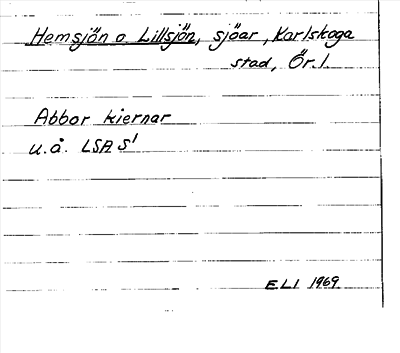 Hemsjön o. Lillsjön, sjöar, Karlskoga
stad, Ör. l.
Abbor kiernar
u.å. LSA S1
ELI 1969